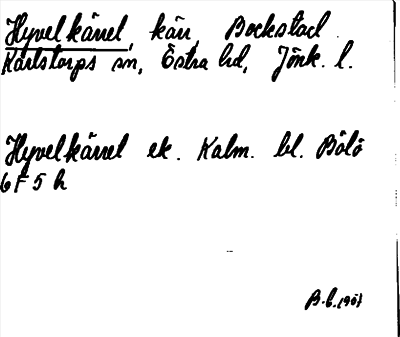 Hyvelkärret, kärr, Bockstad
Karlstorps sn, Östra hd, Jönk. l.
Hyvelkärret ek. Kalm. bl. Bölö
6F 5 h